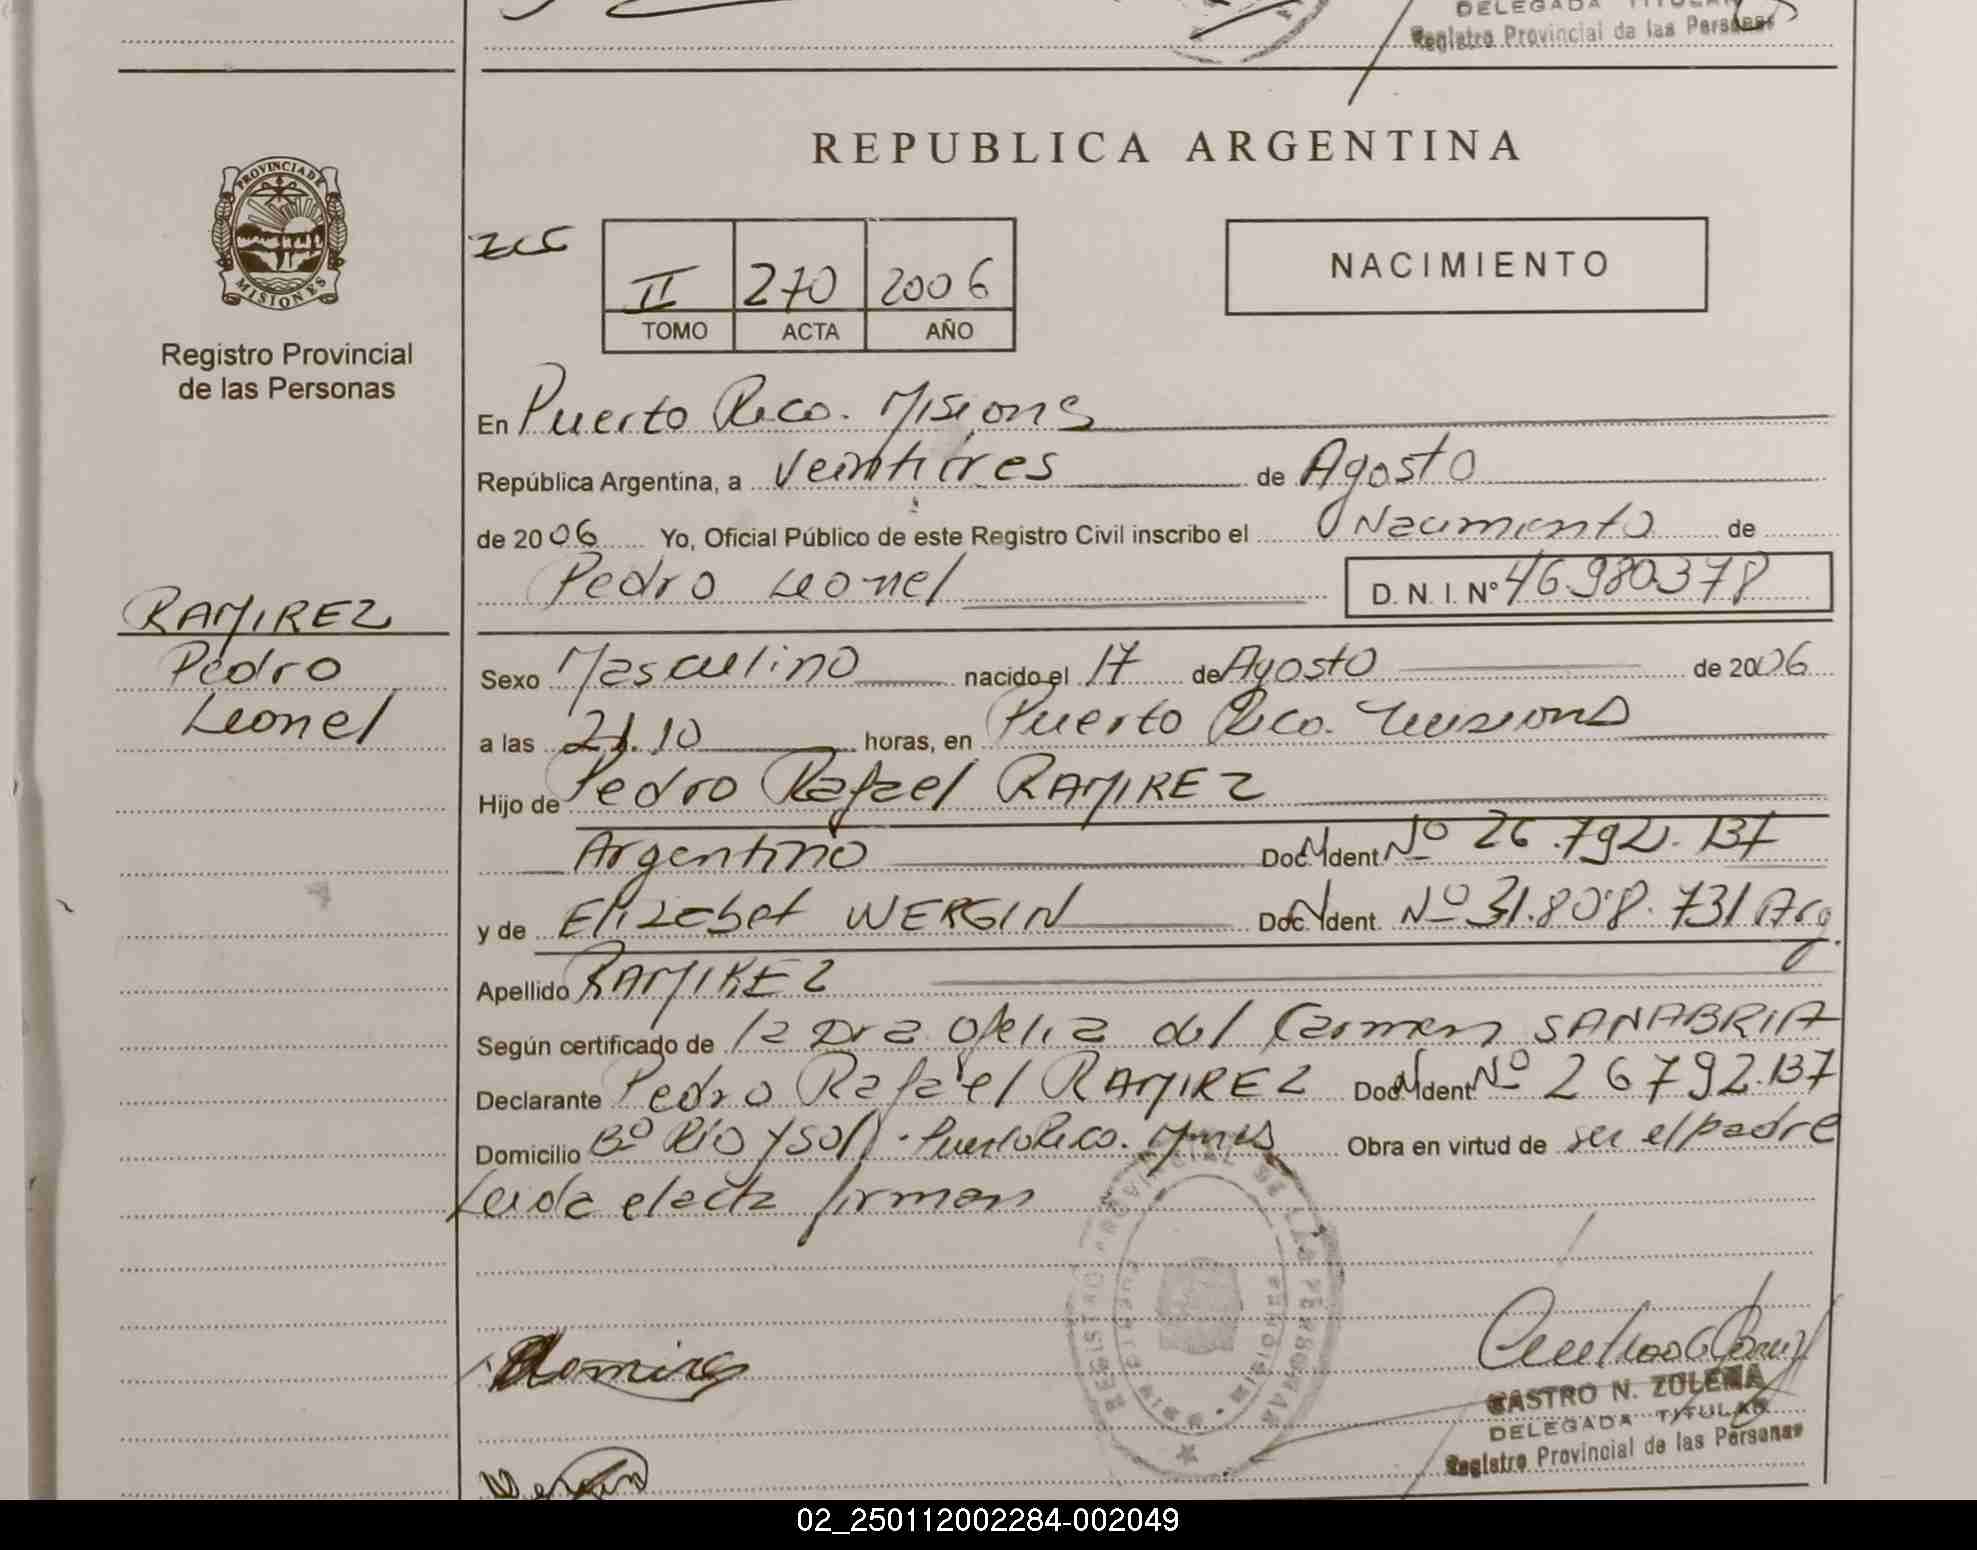 DELEGADA TITULAR
Registro Provincial de las Personas
REPUBLICA ARGENTINA
PROVINCIA DE
MISIONES
Registro Provincial
de las Personas
II 270 2006
TOMO ACTA AÑO
NACIMIENTO
En Puerto Rico. Misiones
República Argentina, a Veintitres de Agosto
de 2006 Yo, Oficial Público de este Registro Civil inscribo el Nacimiento de
Pedro Leonel D. N. I. N° 46.980378
RAMIREZ
Pedro
Leonel
Sexo Masculino nacido el 17 de Agosto de 2006
a las 21.10 horas, en Puerto Rico. Misiones
Hijo de Pedro Rafael RAMIREZ
Argentino Doc. Ident. Nº 26.792.137
y de Elizabet WERGIN Doc. Ident. Nº 31.808.731 Arg.
Apellido RAMIREZ
Según certificado de la Dra Ofelia del Carmen SANABRIA
Declarante Pedro Rafael RAMIREZ Doc. Ident. Nº 26792.137
Domicilio Bº Río y Sol - Puerto Rico. Mnes Obra en virtud de ser el padre
Leida el acta firman
REGISTRO PROVINCIAL DE LAS PERSONAS
PUERTO RICO MISIONES
Ramirez
CASTRO N. ZULEMA
DELEGADA TITULAR
Registro Provincial de las Personas
Wergin
02_250112002284-002049